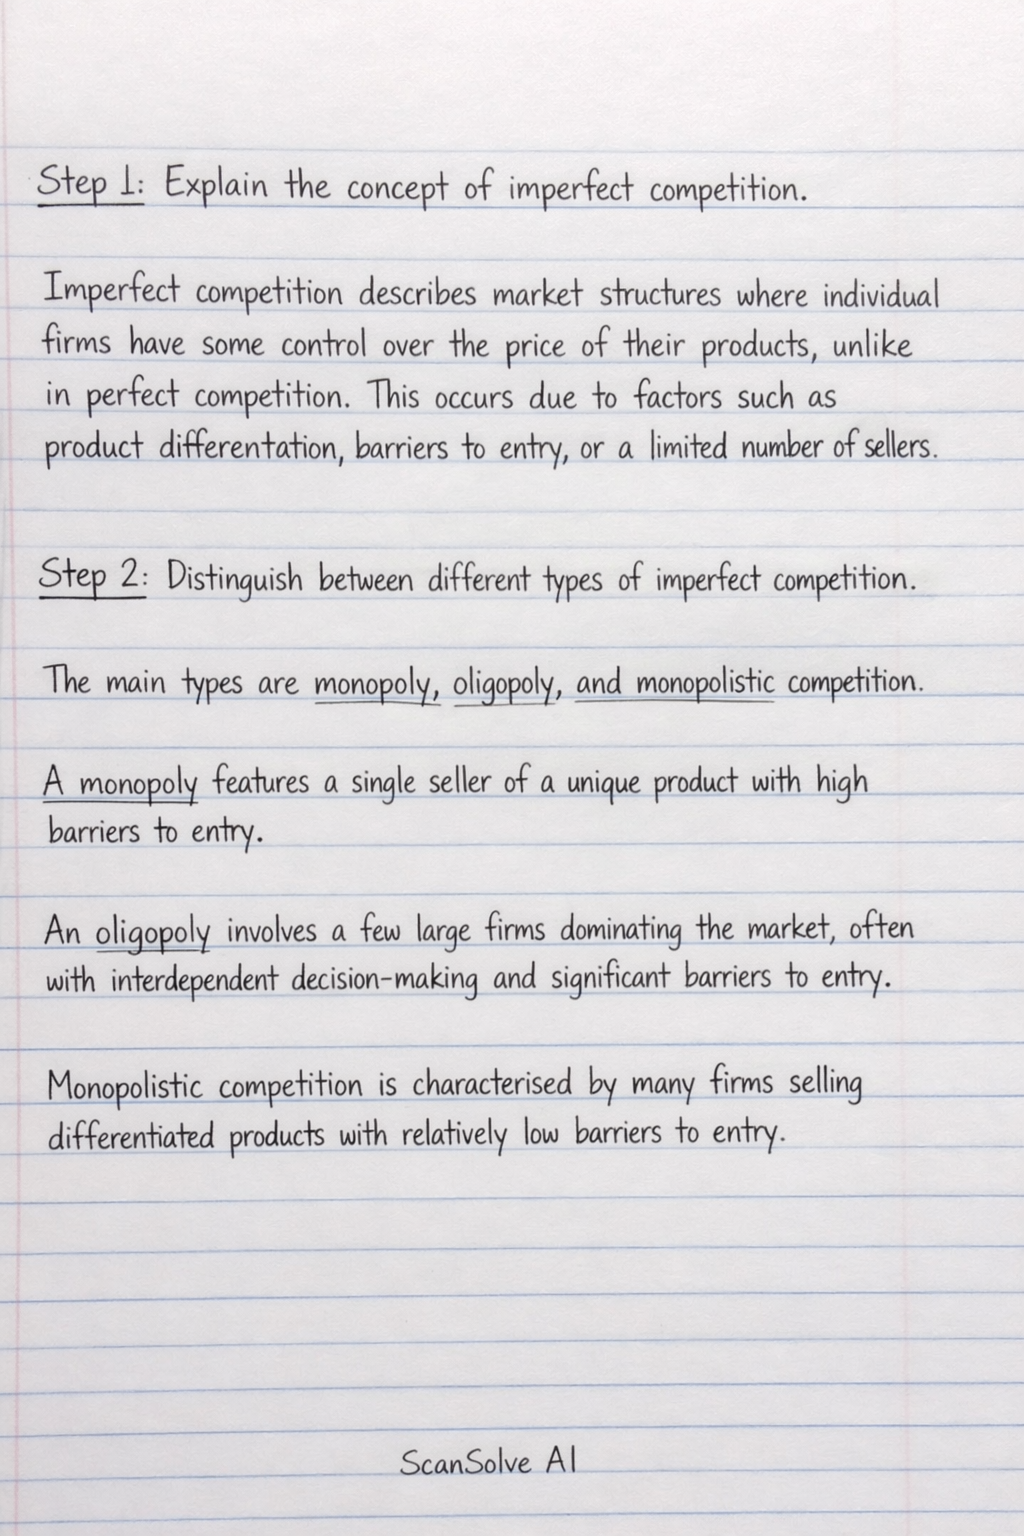 Step 1: Explain the concept of imperfect competition.
Imperfect competition describes market structures where individual
firms have some control over the price of their products, unlike
in perfect competition. This occurs due to factors such as
product differentation, barriers to entry, or a limited number of sellers.
Step 2: Distinguish between different types of imperfect competition.
The main types are monopoly, oligopoly, and monopolistic competition.
A monopoly features a single seller of a unique product with high
barriers to entry.
An oligopoly involves a few large firms dominating the market, often
with interdependent decision-making and significant barriers to entry.
Monopolistic competition is characterised by many firms selling
differentiated products with relatively low barriers to entry.
ScanSolve AI